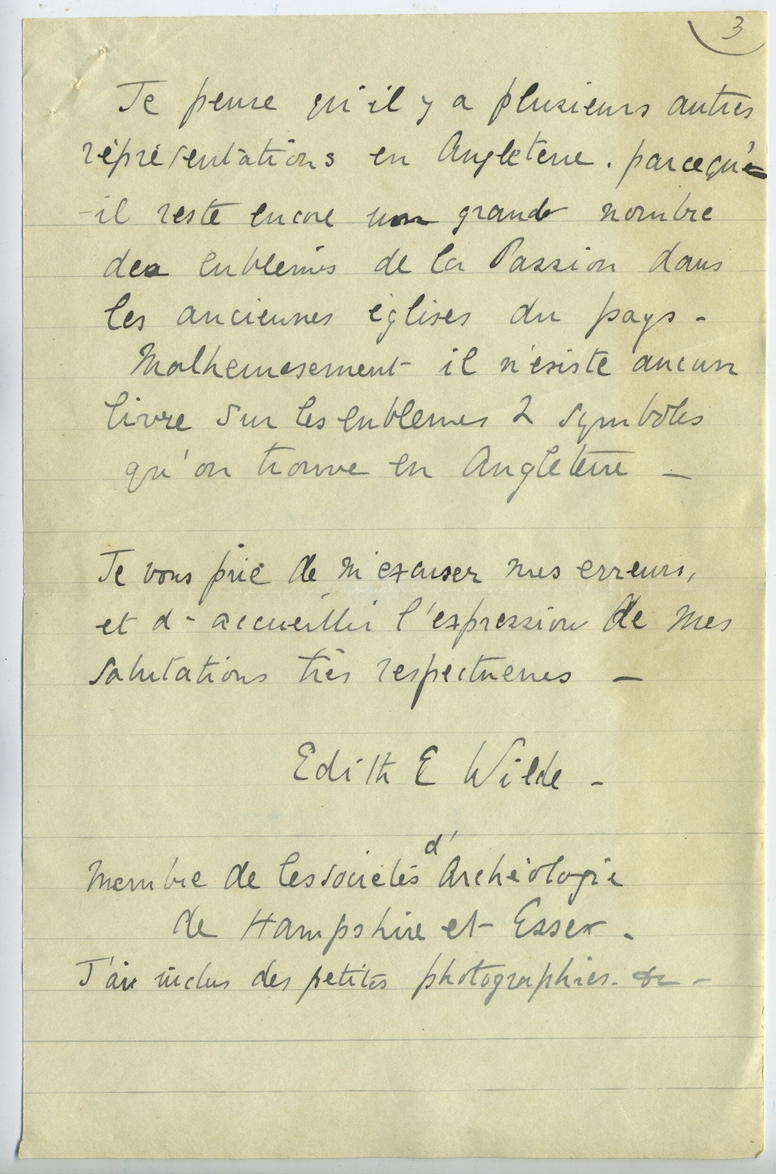 3
Je pense qu'il y a plusieurs autres
réprésentations en Angleterre. parcequ'-
-il reste encore un grand nombre
des emblemes de la Passion dans
les anciennes églises du pays -
Malheuresement il n'existe aucun
livre sur les emblemes & symboles
qu'on trouve en Angleterre -
Je vous prie de m'excuser mes erreurs,
et d'accueillir l'expression de mes
salutations très respectueuses -
Edith E Wilde -
Membre de les sociétés d'Archéologie
de Hampshire et Essex.
J'ai inclus des petites photographies. &c -